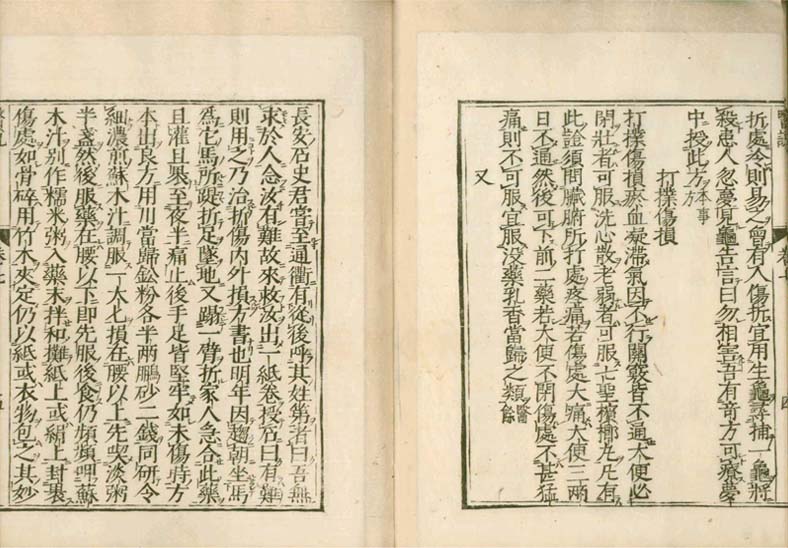 折處冷則易之曾有人傷折宜用生龜尋捕一龜將
殺患人忽夢見龜告言曰勿相害吾有奇方可療夢
中授此方本事方
打撲傷損
打撲傷損瘀血凝滯氣因不行關竅皆不通大便必
閉壯者可服洗心散老弱者可服七聖檳榔丸凡有
此證須問臟腑所打處疼痛若傷處大痛大便三兩
日不通然後可下前二藥若大便不閉傷處不甚猛
痛則不可服宜服沒藥乳香當歸之類醫餘
又
長安石史君嘗至通衢有從後呼其姓第者曰吾無
求於人念汝有難故來救汝出一紙卷授石曰有難
則用之乃治折傷內外損方書也明年因趨朝坐馬
爲它馬所踶折足墜地又蹋一臂折家人急合此藥
且灌且裹至夜半痛止後手足皆堅牢如未傷時方
本出良方用川當歸鈆粉各半兩鵬砂二錢同研令
細濃煎蘇木汁調服一大匕損在腰以上先喫淡粥
半盞然後服藥在腰以下即先服後食仍頻頻呷蘇
木汁別作糯米粥入藥末拌和攤紙上或絹上封裹
傷處如骨碎用竹木夾定仍以紙或衣物包之其妙